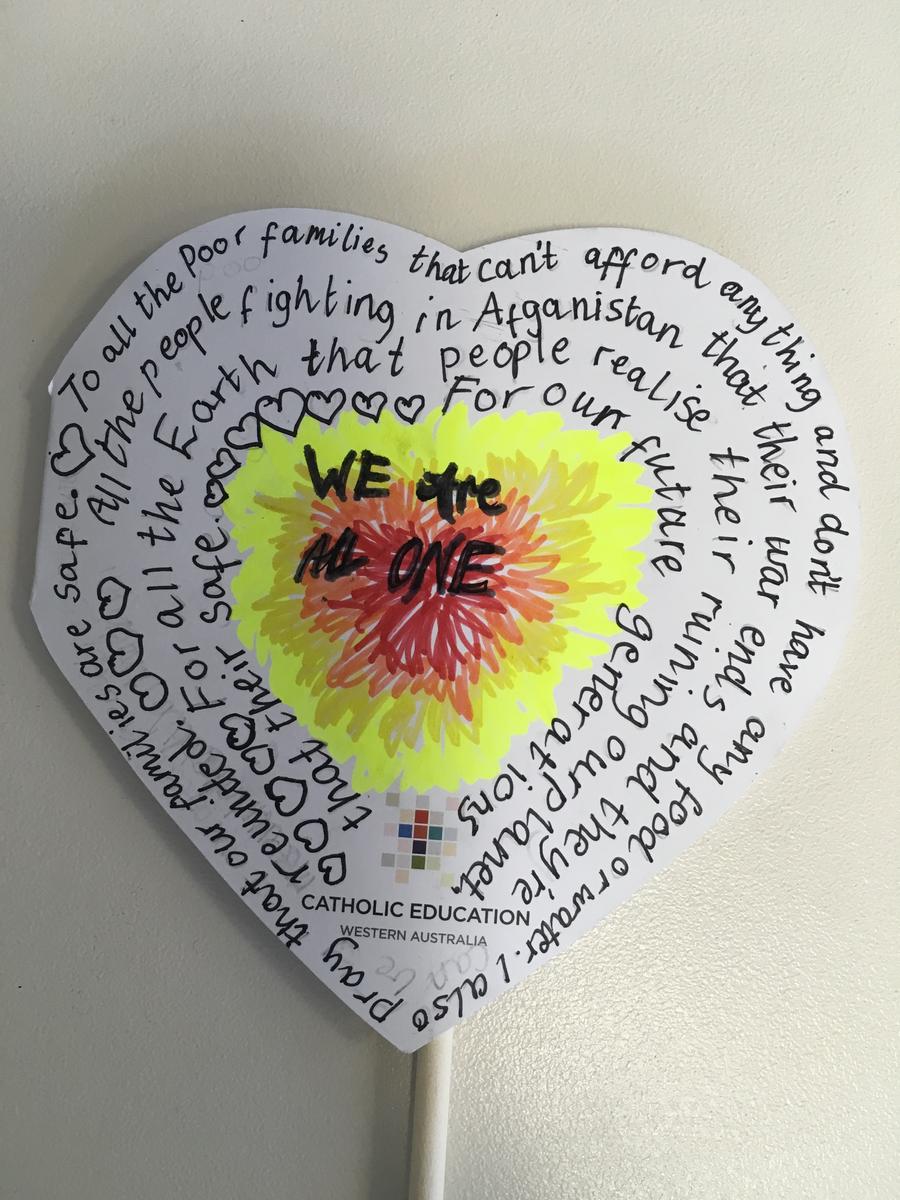 ♡ To all the Poor families that can't afford any thing and don't have any food or water. I also pray that our families are safe.
All the people fighting in Afganistan that their war ends and they're reunited. ♡♡♡
For all the Earth that people realise their runing our planet ♡♡♡♡♡
For our future generations that their safe. ♡♡♡♡♡♡♡
WE are
All ONE
CATHOLIC EDUCATION
WESTERN AUSTRALIA